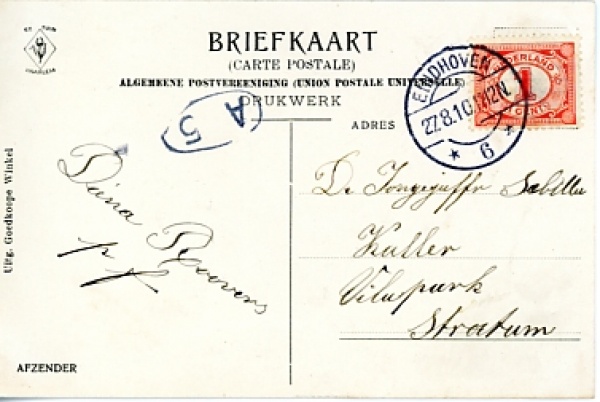 BRIEFKAART
(CARTE POSTALE)
ALGEMEENE POSTVEREENIGING (UNION POSTALE UNIVERSELLE)
DRUKWERK
ADRES
EINDHOVEN
27.8.10
12N.
* 6 *
NEDERLAND
1
CENT
A
5
Uitg. Goedkoope Winkel
Dina Roovers
p f
De Jongejuffr
Kuller
Villapark
Stratum
AFZENDER